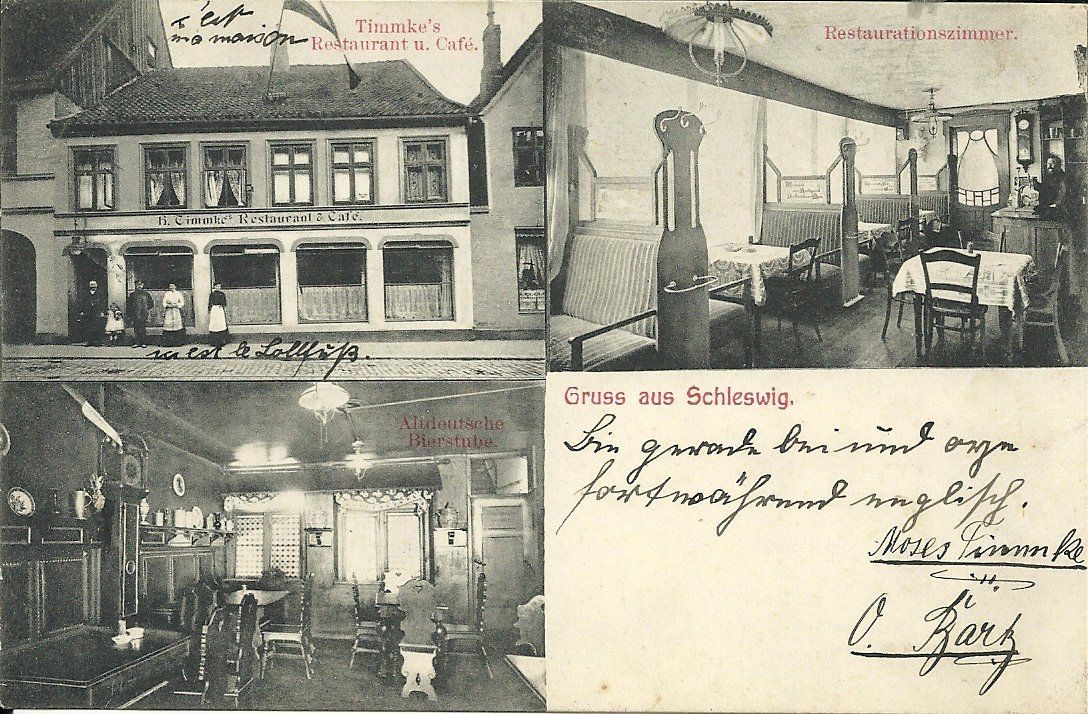 c'est
ma maison
Timmke's
Restaurant u. Café.
H. Timmke's Restaurant & Café.
Restaurationszimmer.
Altdeutsche
Bierstube.
Gruss aus Schleswig.
Bin gerade bei und
fortwährend englisch.
Moses Timmke
O.